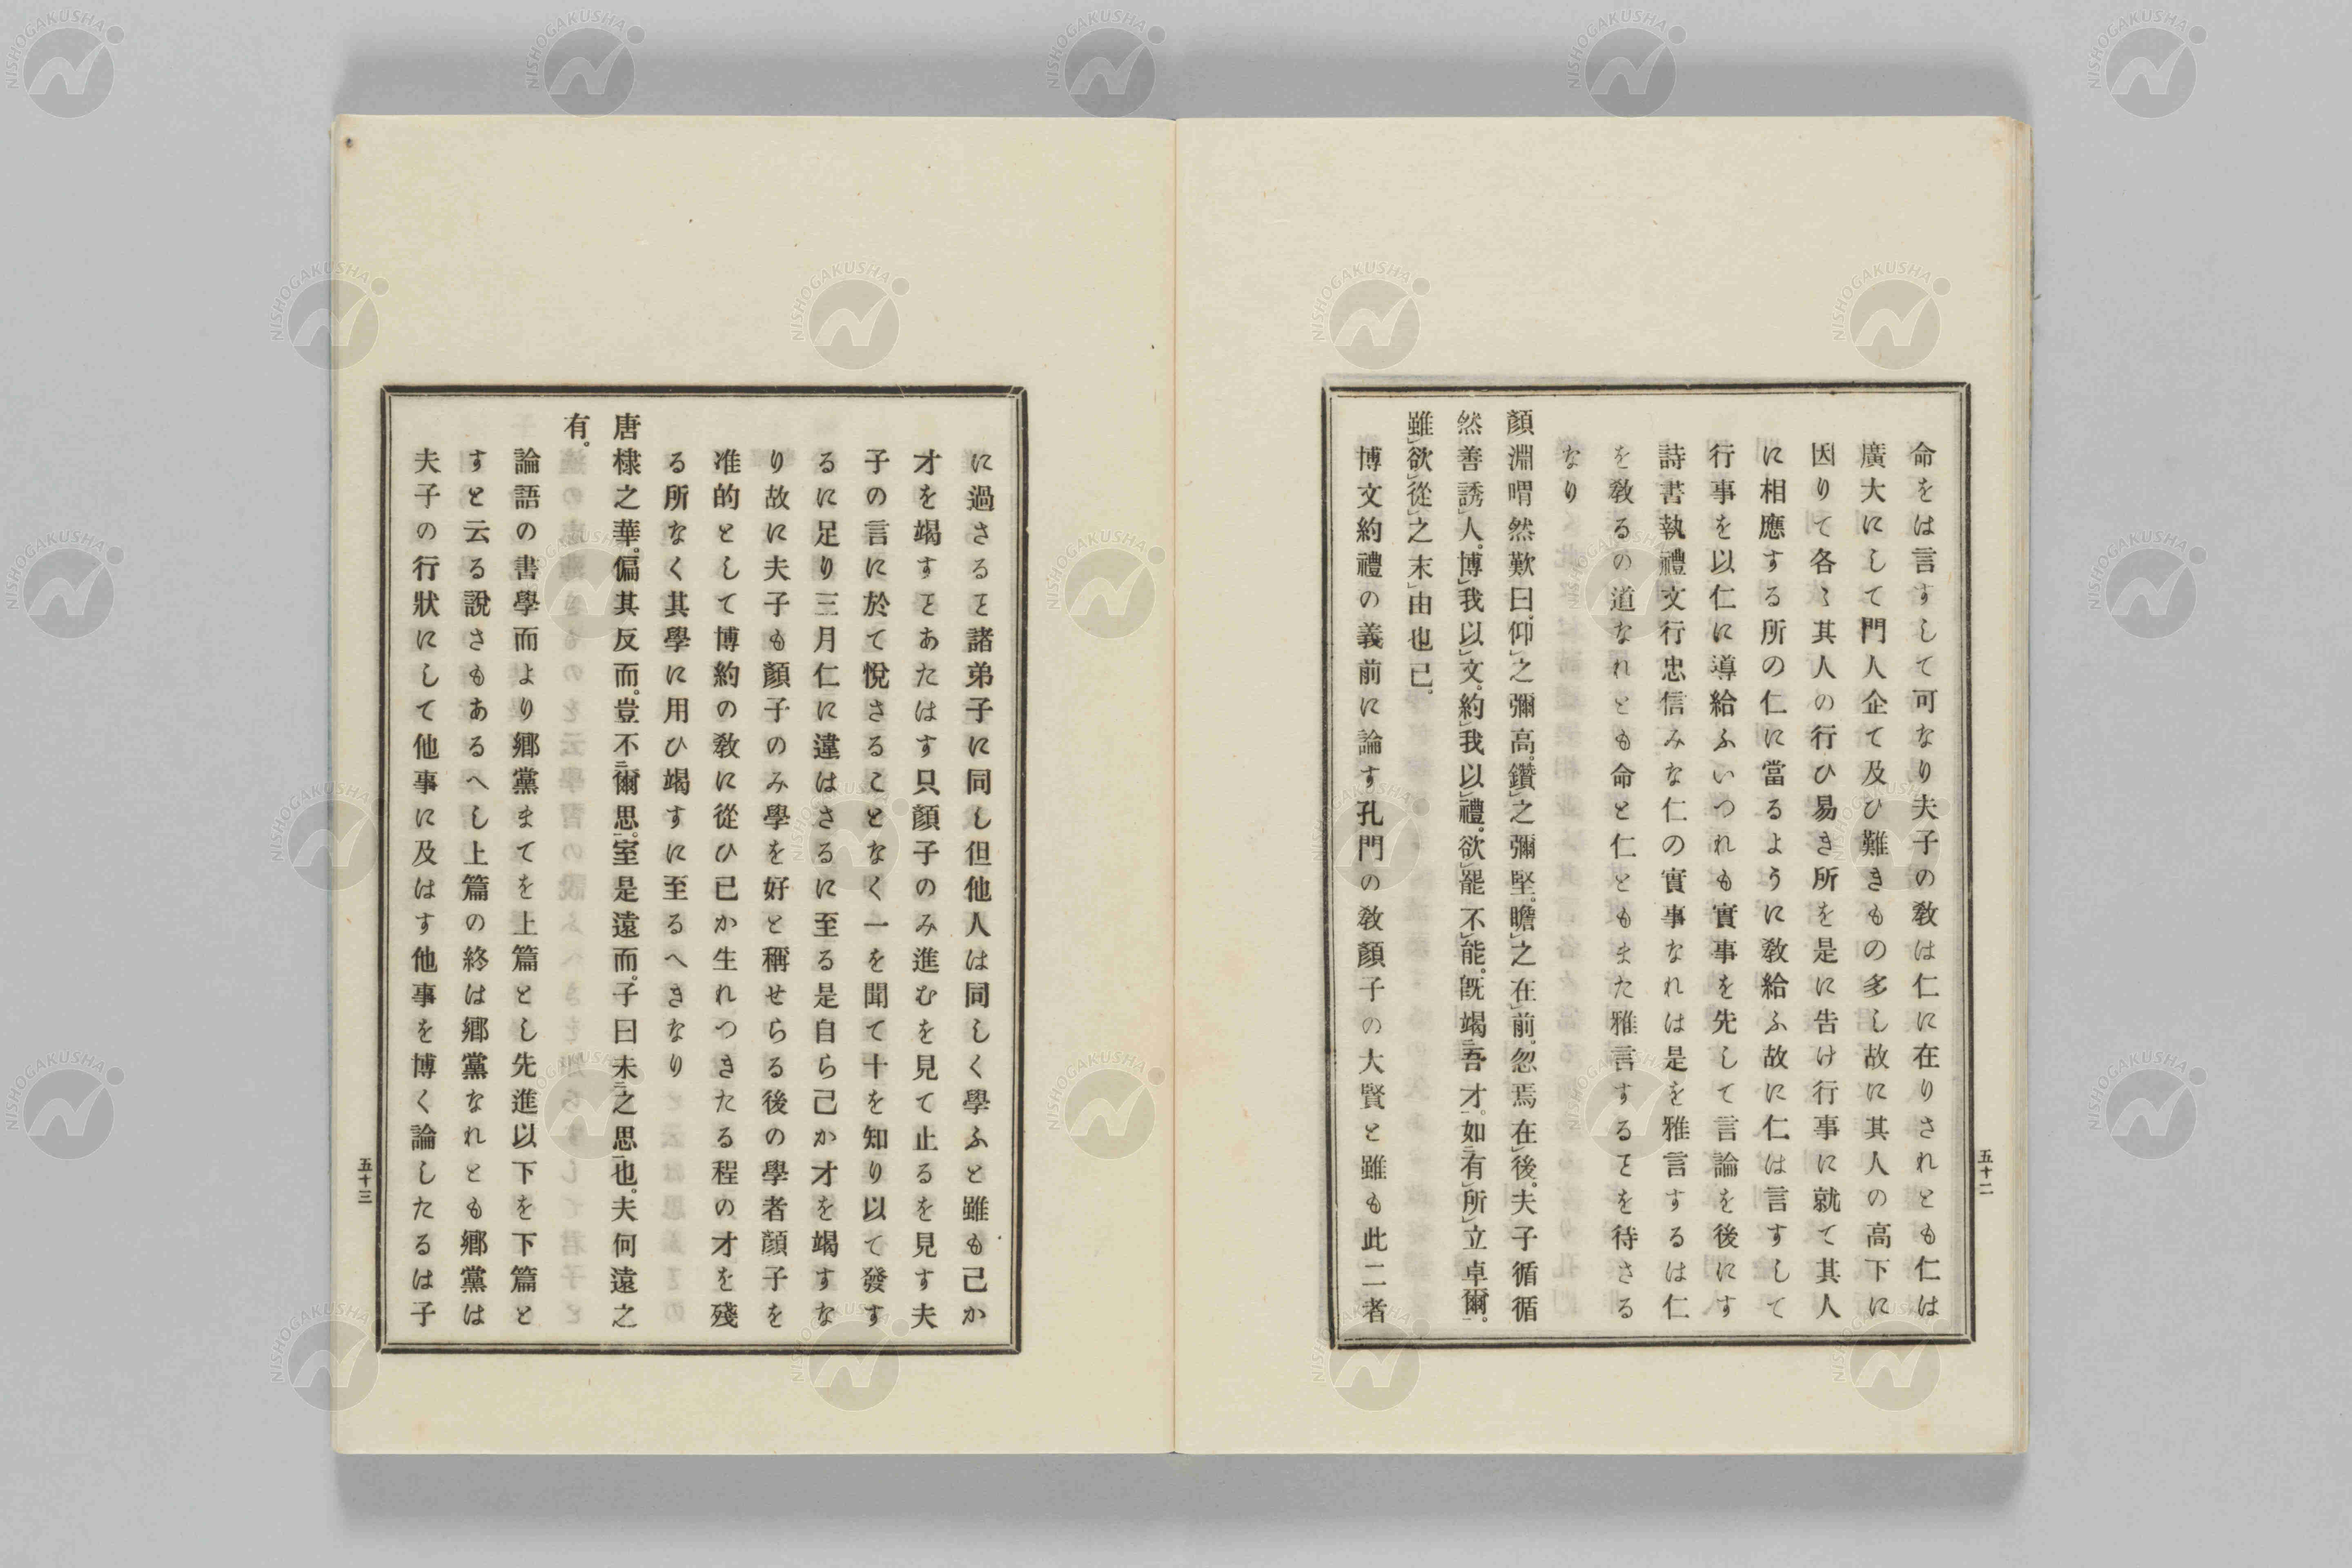 命をは言すして可なり夫子の敎は仁に在りされとも仁は
廣大にして門人企て及ひ難きもの多し故に其人の高下に
因りて各〻其人の行ひ易き所を是に告け行事に就て其人
に相應する所の仁に當るように敎給ふ故に仁は言すして
行事を以仁に導給ふいつれも實事を先して言論を後にす
詩書執禮文行忠信みな仁の實事なれは是を雅言するは仁
を敎るの道なれとも命と仁ともまた雅言するヿを待さる
なり
顏淵喟然歎曰。仰レ之彌高。鑽レ之彌堅。瞻レ之在レ前。忽焉在レ後。夫子循循
然善誘レ人。博レ我以レ文。約レ我以レ禮。欲レ罷不レ能。旣竭二吾才一。如三有レ所レ立卓爾一。
雖レ欲レ從レ之末レ由也已。
博文約禮の義前に論す孔門の敎顏子の大賢と雖も此二者
五十二
に過さるヿ諸弟子に同し但他人は同しく學ふと雖も己か
才を竭すヿあたはす只顏子のみ進むを見て止るを見す夫
子の言に於て悅さることなく一を聞て十を知り以て發す
るに足り三月仁に違はさるに至る是自ら己か才を竭すな
り故に夫子も顏子のみ學を好と稱せらる後の學者顏子を
准的として博約の敎に從ひ已か生れつきたる程の才を殘
る所なく其學に用ひ竭すに至るへきなり
唐棣之華。偏其反而。豈不二爾思一。室是遠而。子曰未二之思一也。夫何遠之
有。
論語の書學而より鄕黨まてを上篇とし先進以下を下篇と
すと云る說さもあるへし上篇の終は鄕黨なれとも鄕黨は
夫子の行狀にして他事に及はす他事を博く論したるは子
五十三
NISHOGAKUSHA